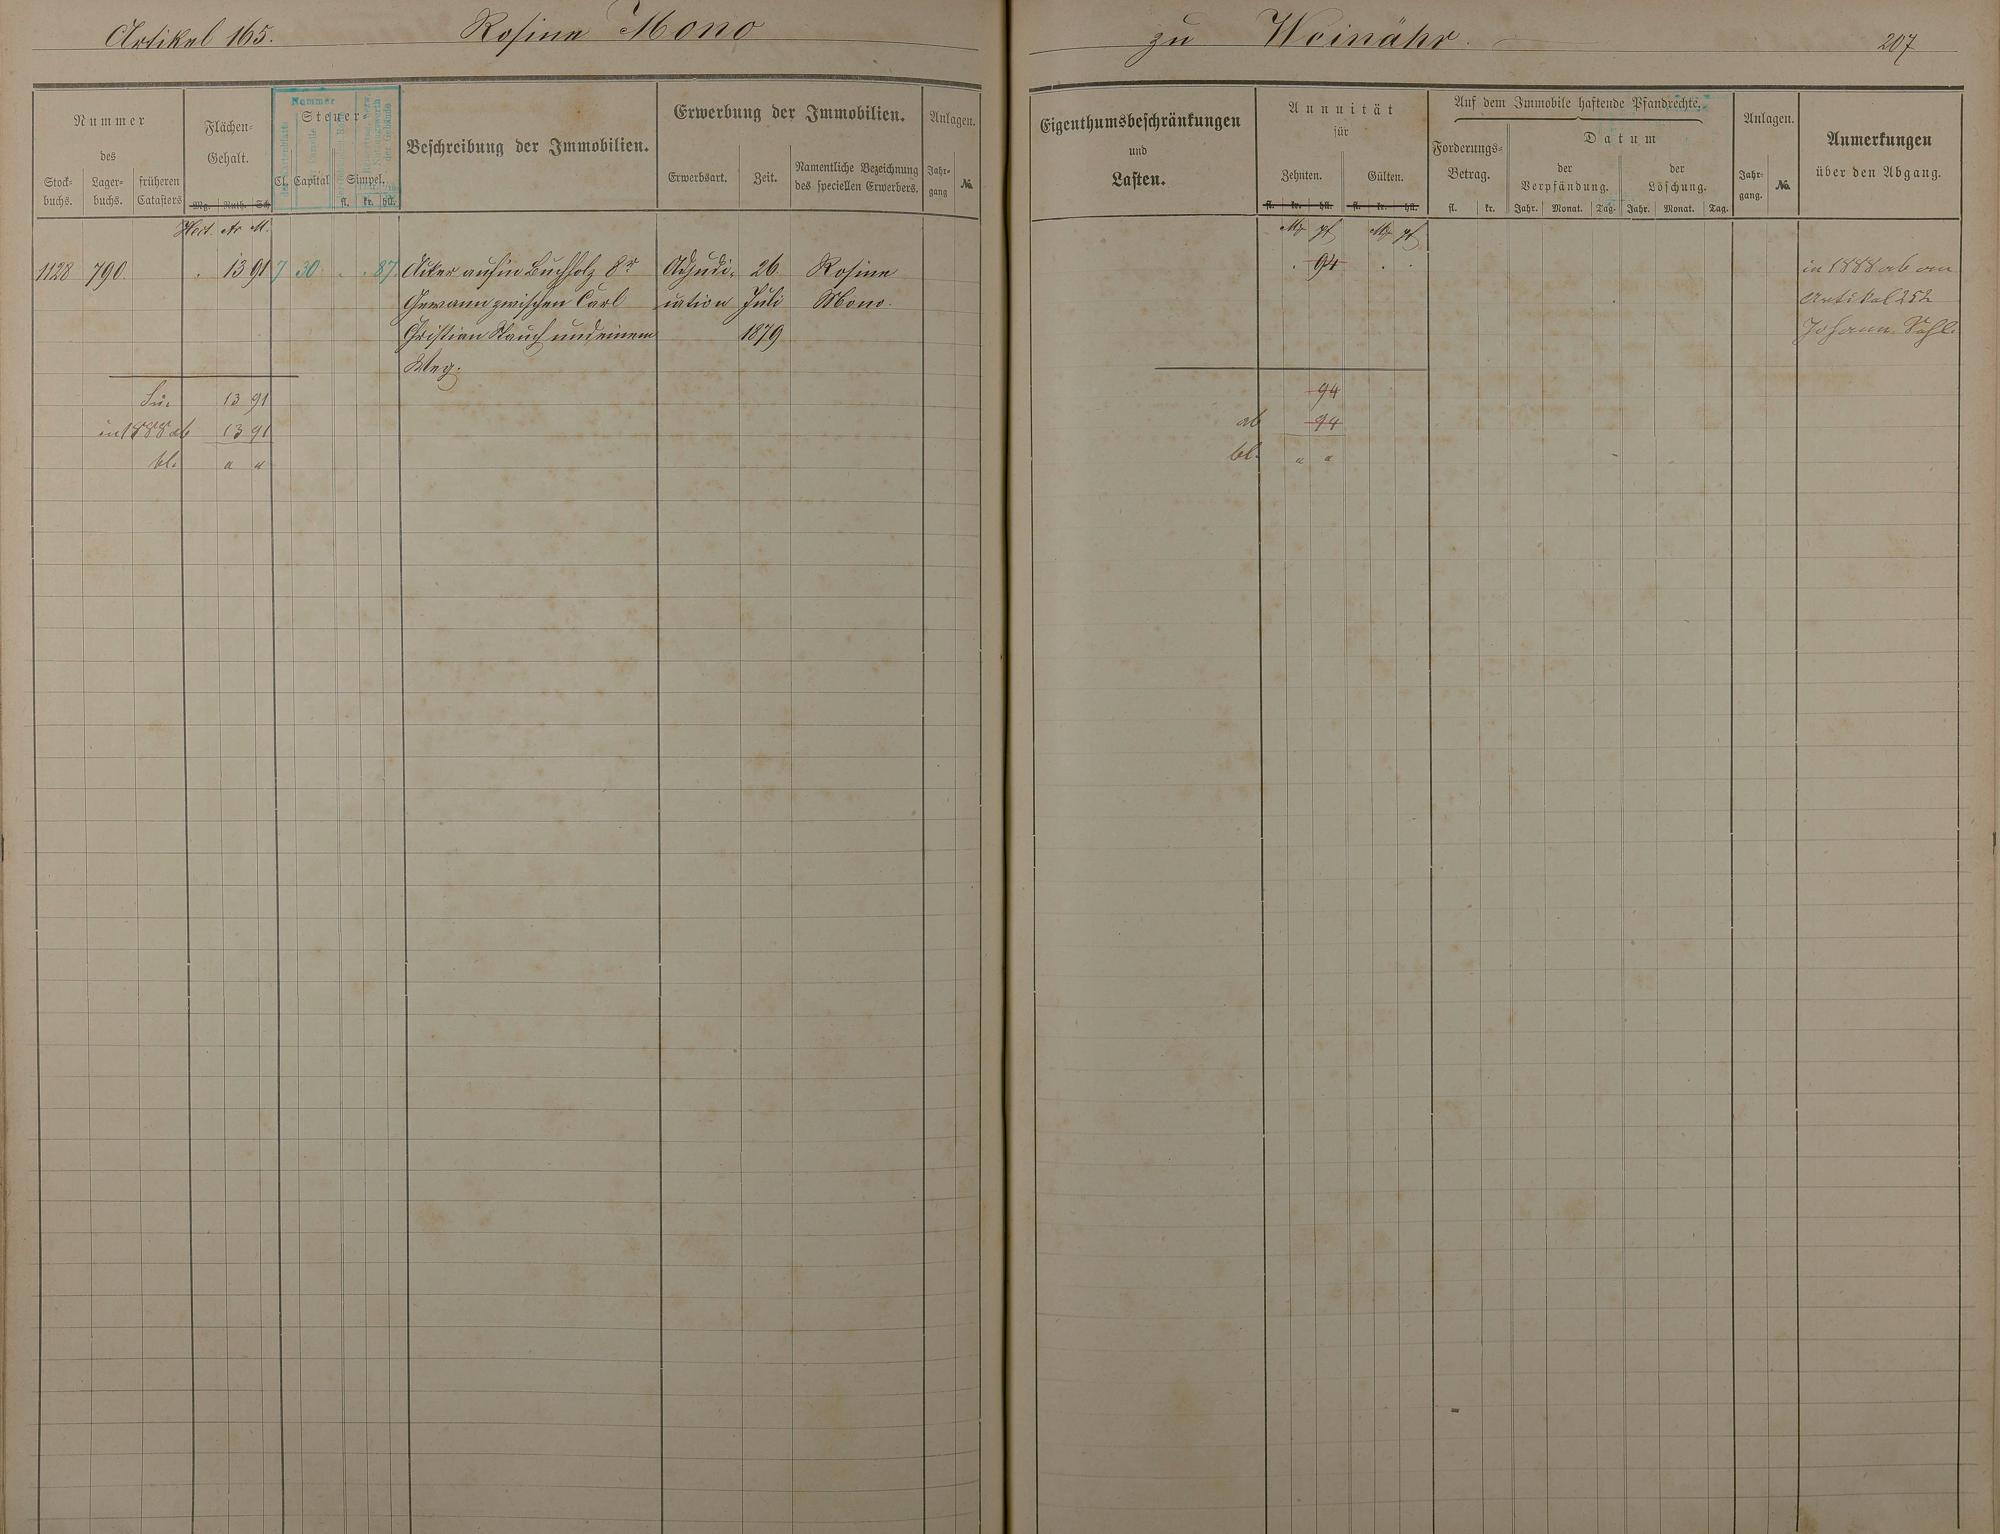 Artikel 165. Rosine Mono zu Weinähr. 207
Nummer
des
Stock-
buchs.
Lager-
buchs.
früheren
Catasters
Flächen-
Gehalt.
Mg. Ruth. Sch.
Nummer
Steuer-
Cl. Capital Simpel.
fl. kr. hll.
Beschreibung der Immobilien.
Erwerbung der Immobilien.
Erwerbsart. Zeit.
Namentliche Bezeichnung
des speciellen Erwerbers.
Anlagen.
Jahr-
gang
No.
Eigenthumsbeschränkungen
und
Lasten.
Annuität
für
Zehnten. Gülten.
fl. kr. hll. fl. kr. hll.
Auf dem Immobile haftende Pfandrechte.
Forderungs-
Betrag.
fl. kr.
Datum
der
Verpfändung.
der
Löschung.
Jahr. Monat. Tag. Jahr. Monat. Tag.
Anlagen.
Jahr-
gang.
No.
Anmerkungen
über den Abgang.
Hect. Ar M. Mk pf Mk pf
1128 790 . 13 91 7 30 . . 87 Acker auf'm Buchholz 8r Adjudi- 26. Rosine . 94 . . in 1888 ab an
Gewann zwischen Carl cation Juli Mono. Artikel 252
Christian Stauch und einem 1879 Johann
Weg.
Su. 13 91 94
in 1888 ab 13 91 ab 94
bl. " " bl. " "